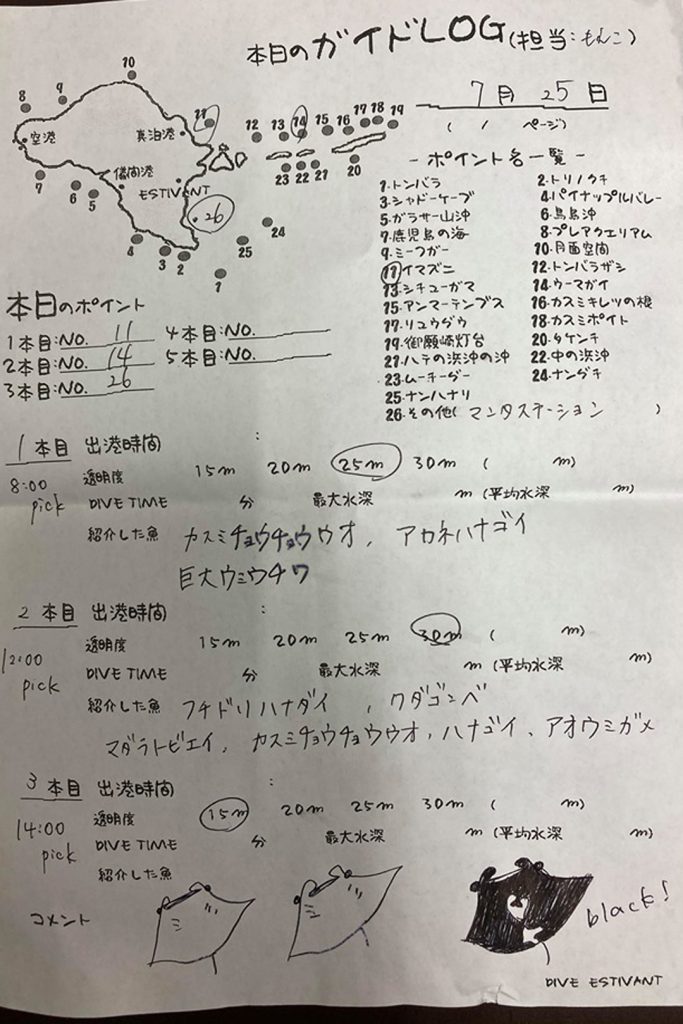 本日のガイドLOG(担当:もんこ)
7月 25日
( / ページ)
10
9
8
11
12
13
14
15
16
17
18
19
空港
真泊港
儀間港
ESTIVANT
7
6
5
23
22
21
20
26
24
25
4
3
2
1
- ポイント名一覧 -
1.トンバラ 2.トリノクチ
3.シャドーケーブ 4.パイナップルバレー
5.ガラサー山沖 6.鳥島沖
7.鹿児島の海 8.プレアクエリアム
9.ミーフガー 10.月面空間
11.イマズニ 12.トンバラザシ
13.シチューガマ 14.ウーマガイ
15.アンマーテンプス 16.カスミキレツの根
17.リュウグウ 18.カスミポイント
19.御願崎灯台 20.タケンチ
21.ハテの浜沖の沖 22.中の浜沖
23.ムーチーグー 24.ナングチ
25.ナンハナリ
26.その他( マンタステーション )
本日のポイント
1本目:NO. 11 4本目:NO.
2本目:NO. 14 5本目:NO.
3本目:NO. 26
1本目 出港時間 :
8:00 pick
透明度 15m 20m 25m 30m ( m)
DIVE TIME 分 最大水深 m (平均水深 m)
紹介した魚 カスミチョウチョウウオ, アカネハナゴイ
巨大ウミウチワ
2本目 出港時間 :
12:00 pick
透明度 15m 20m 25m 30m ( m)
DIVE TIME 分 最大水深 m (平均水深 m)
紹介した魚 フチドリハナダイ , クダゴンベ
マダラトビエイ, カスミチョウチョウウオ, ハナゴイ、アオウミガメ
3本目 出港時間 :
14:00 pick
透明度 15m 20m 25m 30m ( m)
DIVE TIME 分 最大水深 m (平均水深 m)
紹介した魚
コメント
black!
DIVE ESTIVANT